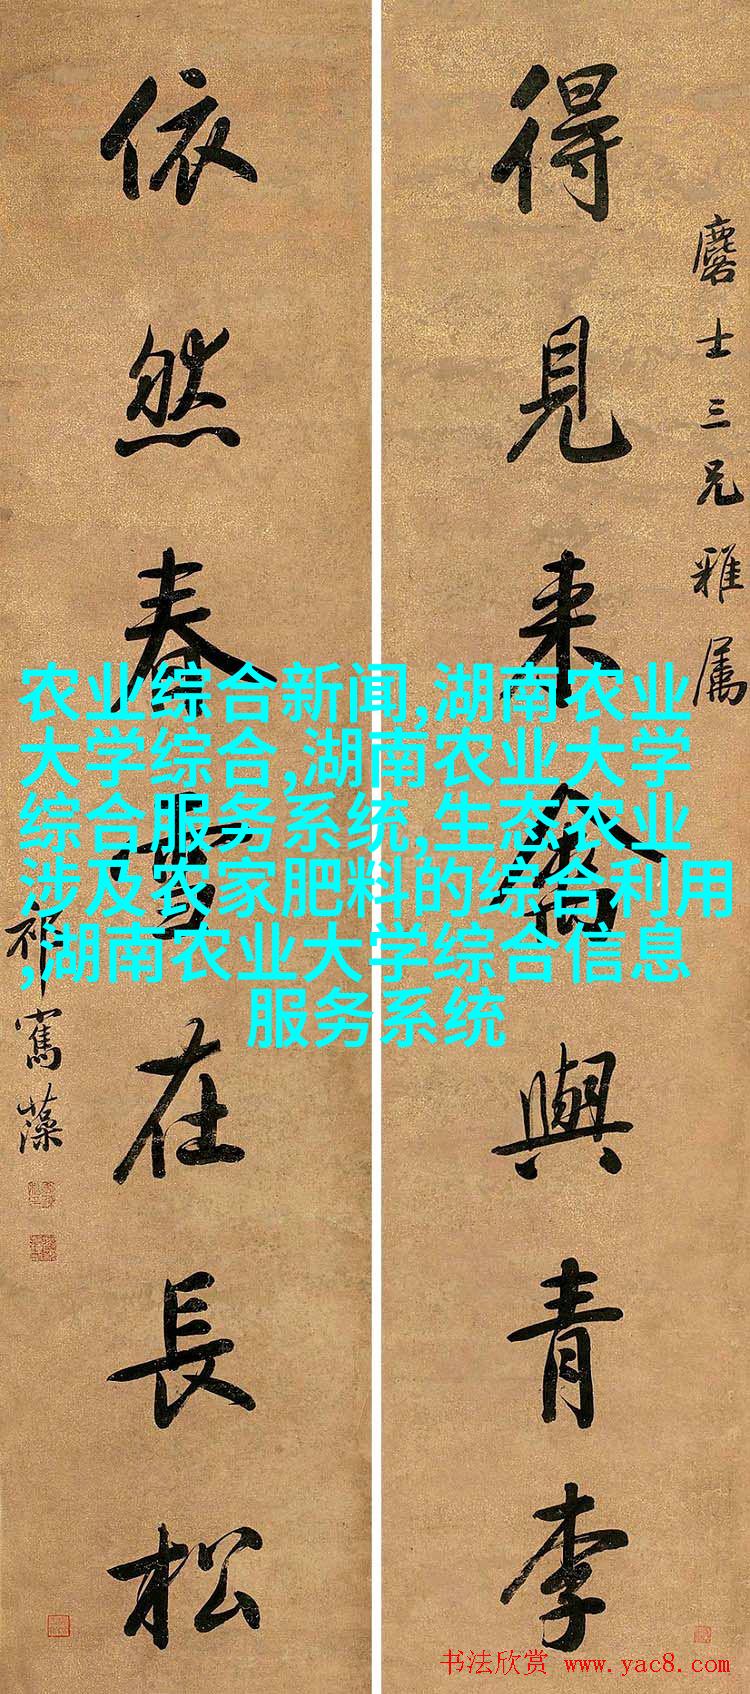 麐士三兄雅属
得見来禽與青李
依然春雪在長松
祁寯藻
农业综合新闻,湖南农业
大学综合,湖南农业大学
综合服务系统,生态农业
涉及农家肥料的综合利用
,湖南农业大学综合信息
服务系统
书法欣赏 www.yac8.com